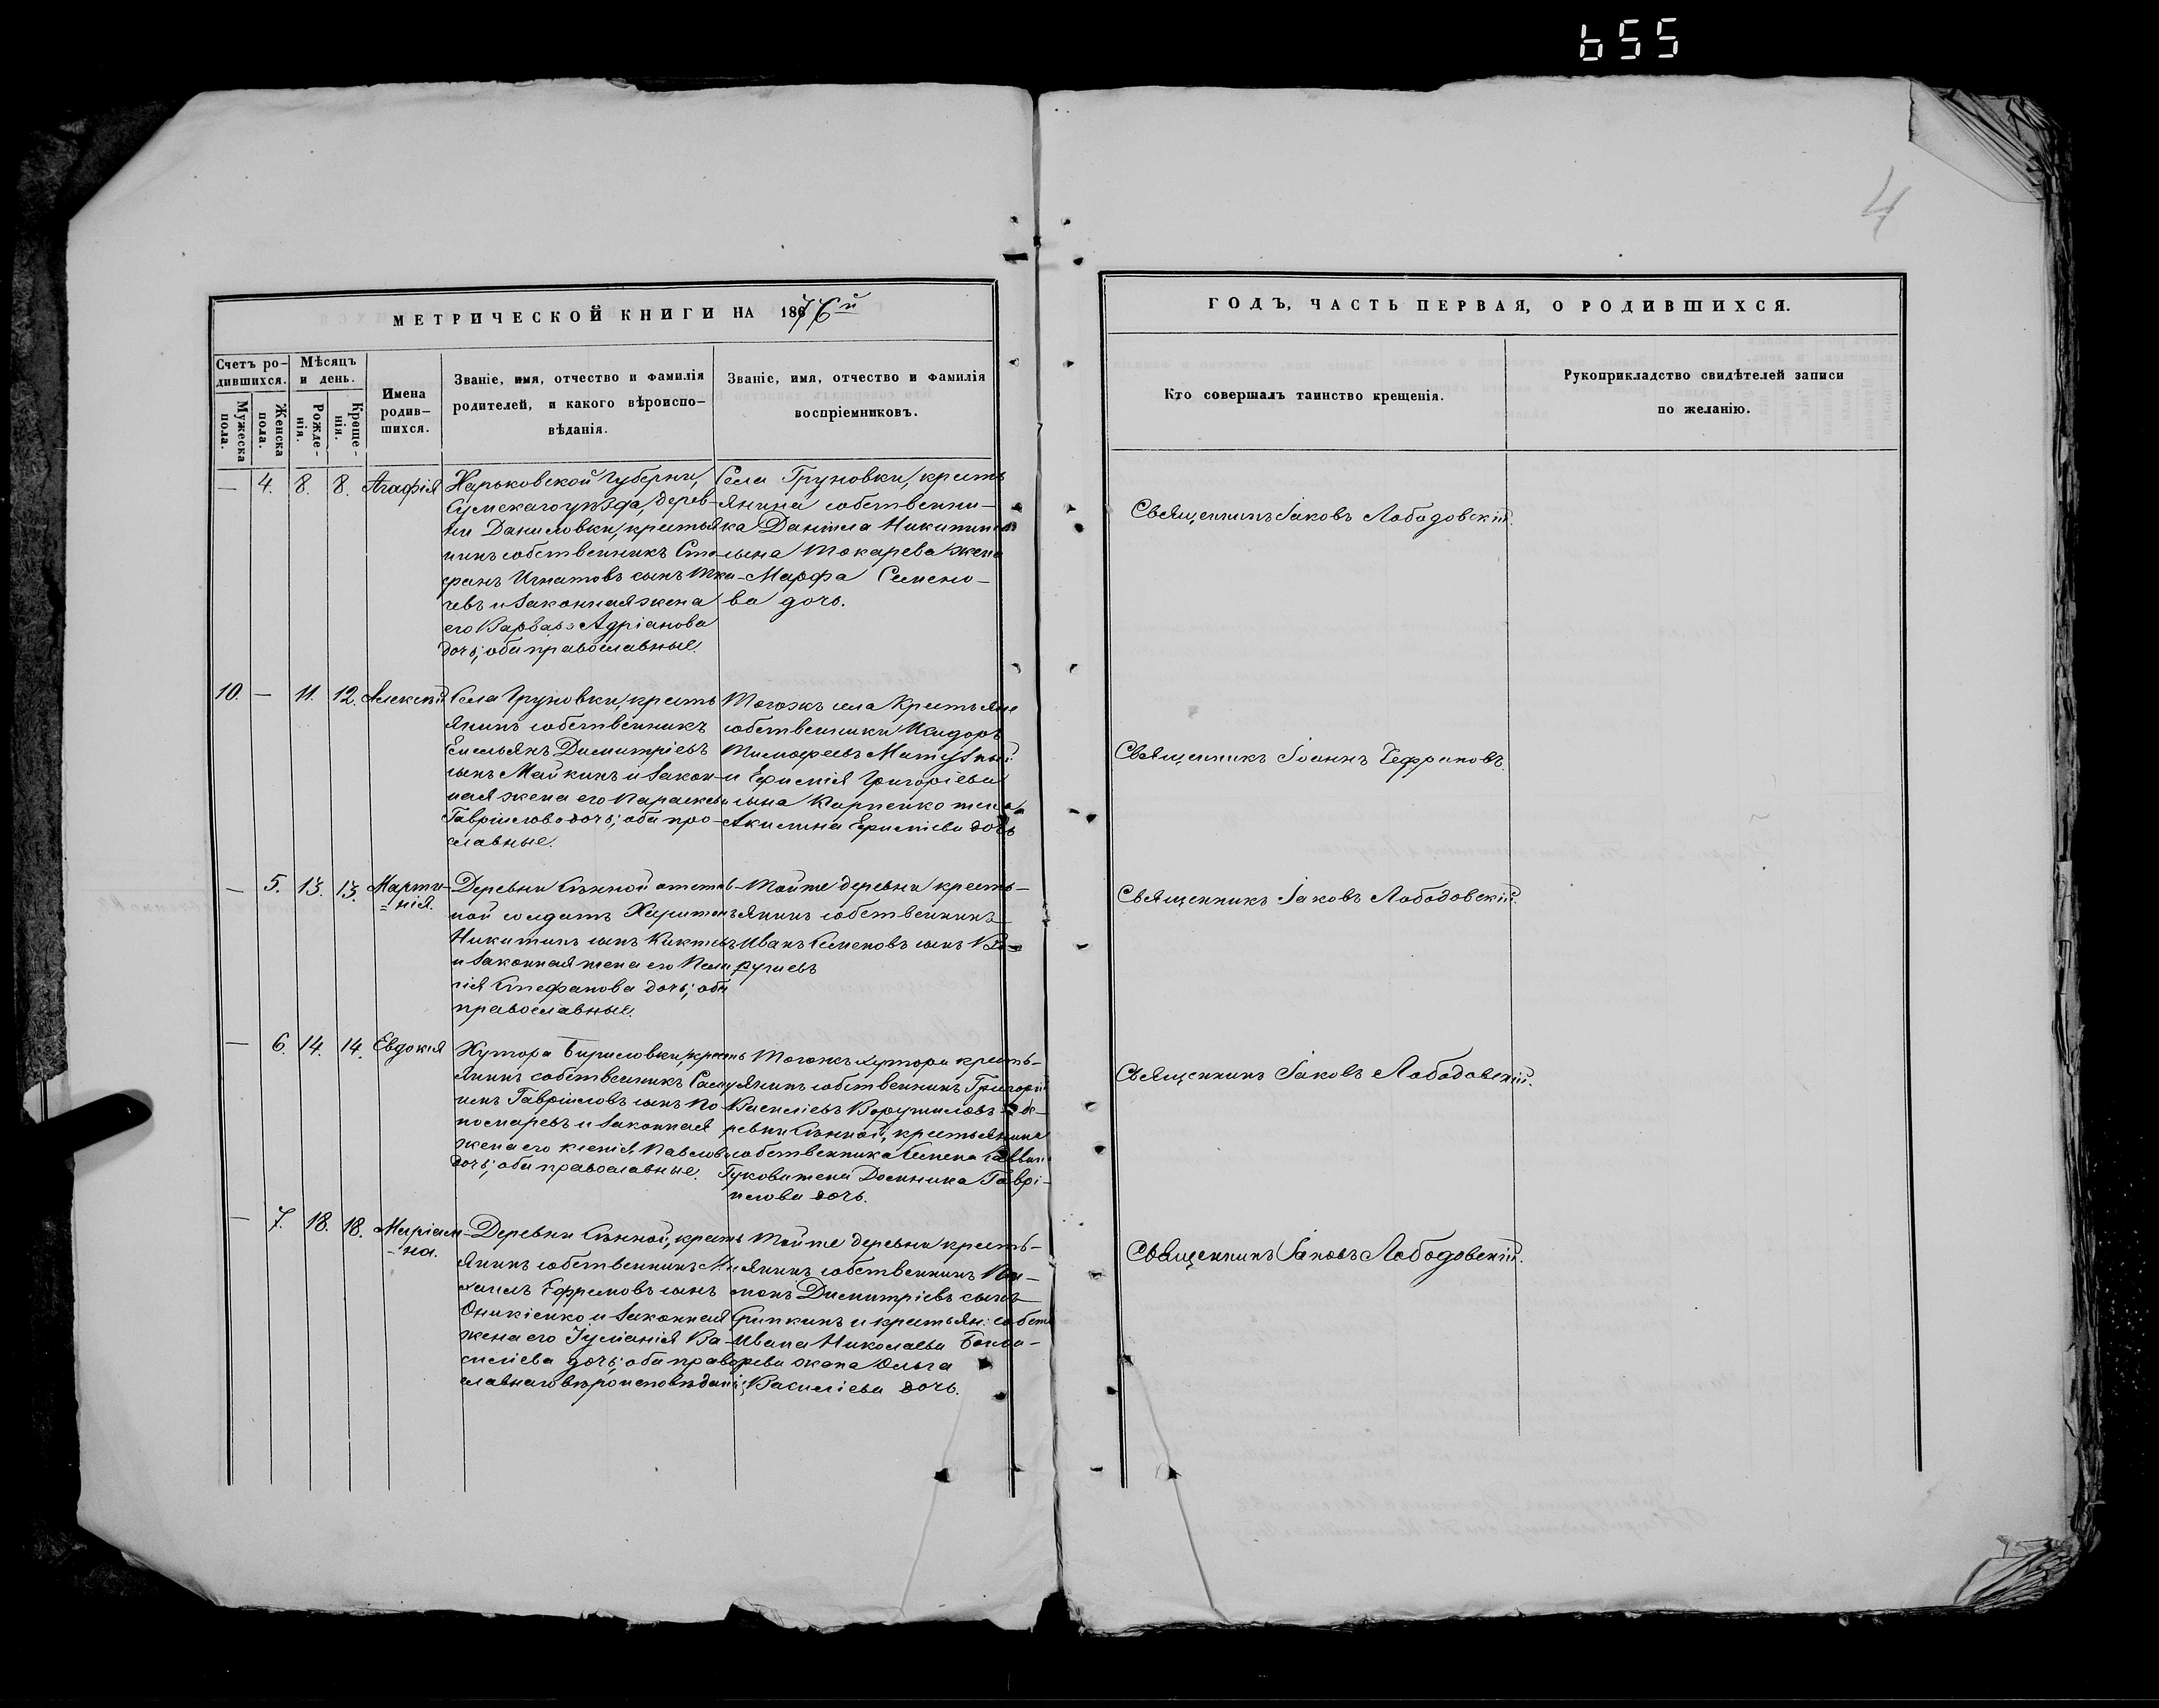 655
4
МЕТРИЧЕСКОЙ КНИГИ НА 1876й
ГОДЪ, ЧАСТЬ ПЕРВАЯ, О РОДИВШИХСЯ.
Счетъ ро-
дившихся.
Мужеска
пола.
Женска
пола.
Мѣсяцъ
и день.
Рожде-
нія.
Креще-
нія.
Имена
родив-
шихся.
Званіе, имя, отчество и фамилія
родителей, и какого вѣроиспо-
вѣданія.
Званіе, имя, отчество и фамилія
воспріемниковъ.
Кто совершалъ таинство крещенія.
Рукоприкладство свидѣтелей записи
по желанію.
— 4. 8. 8. Агафія
Харьковской Губерніи,
Сумскаго уѣзда, дерев-
ни Даниловки, крестья
нинъ собственникъ Сте
фанъ Игнатовъ сынъ Тка-
чевъ и законная жена
его Варвара Адріанова
дочь; оба православные.
Села Груновки, кресть
янина собственни-
ка Даніила Никитина
сына Токарева жена
Марфа Семено-
ва дочь.
Священникъ Іаковъ Лободовскій.
10. — 11. 12. Алексѣй
Села Груновки, кресть
янинъ собственникъ
Емельянъ Димитріевъ
сынъ Майкинъ и закон-
ная жена его Параскева
Гавріилова дочь; оба пра-
славные.
Тогожъ села крестьяне
собственники Исидоръ
Тимофеевъ
и Ефимія Григоріева
сына Карпенко жена
Акилина Ефиміева дочь
Священникъ Іоаннъ
— 5. 13. 13. Марти-
нія.
Деревни Сѣнной отстав-
ной солдатъ Харитонъ
Никитинъ сынъ
и законная жена его Пела
гія Стефанова дочь; оба
православные.
Тойже деревни кресть-
янинъ собственникъ
Иванъ Семеновъ сынъ
Священникъ Іаковъ Лободовскій.
— 6. 14. 14. Евдокія
Хутора Кириловки, кресть
янинъ собственникъ Саму
илъ Гавріиловъ сынъ По
номаревъ и законная
жена его Ксенія Павлова
дочь; оба православные.
Тогожъ хутора кресть-
янинъ собственникъ Григорій
Василіевъ Ворушиловъ и де-
ревни Сѣнной, крестьянина
собственника Семена Саввина
Гукова жена Домника Гаврі-
илова дочь.
Священникъ Іаковъ Лободовскій.
— 7. 18. 18. Маріам-
на.
Деревни Сѣнной, кресть
янинъ собственникъ Ми
хаилъ Ефремовъ сынъ
Оникіенко и законная
жена его Іуліанія Ва-
силіева дочь; оба право
славнаго вѣроисповѣданія.
Тойже деревни кресть-
янинъ собственникъ
Димитріевъ сынъ
Скрипкинъ и крестьян: собств
Ивана Николаева Бонда-
рева жена Ольга
Василіева дочь.
Священникъ Іаковъ Лободовскій.